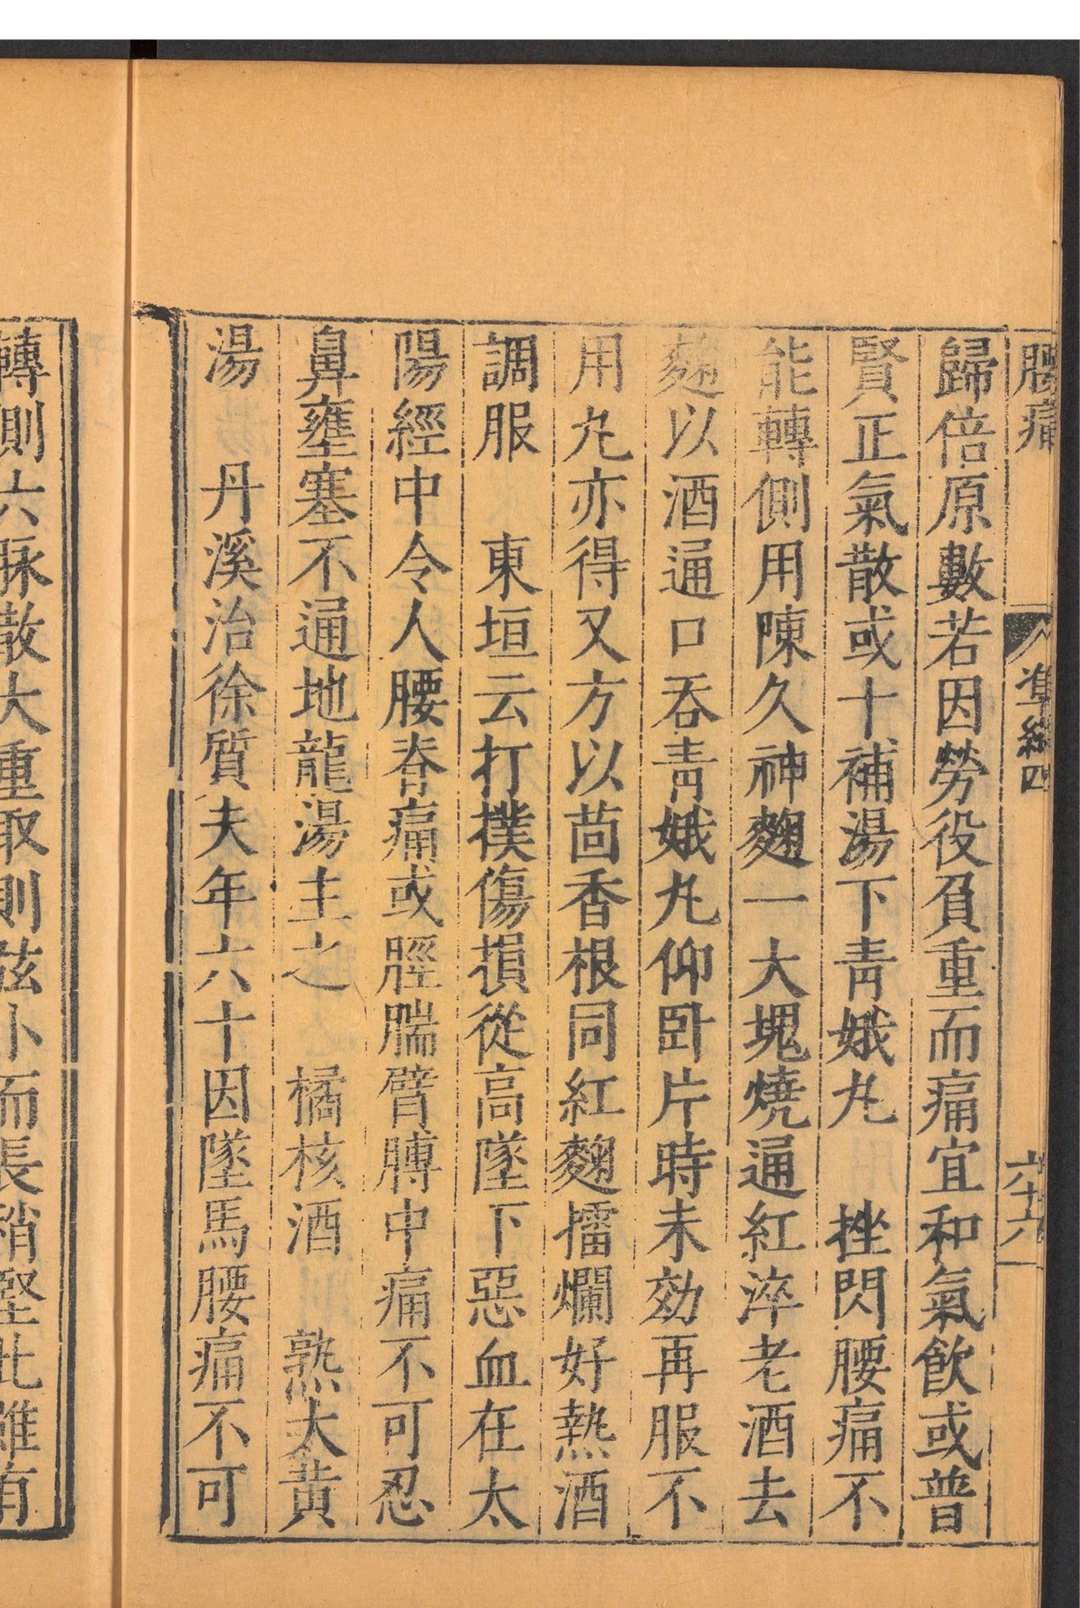 腰痛 準繩四 六十六
歸倍原數若因勞役負重而痛宜和氣飲或普
賢正氣散或十補湯下青娥丸 挫閃腰痛不
能轉側用陳久神麴一大塊燒通紅淬老酒去
麴以酒通口吞青娥丸仰卧片時未効再服不
用丸亦得又方以茴香根同紅麴擂爛好熱酒
調服 東垣云打撲傷損從高墜下惡血在太
陽經中令人腰脊痛或脛腨臂膊中痛不可忍
鼻壅塞不通地龍湯主之 橘核酒 熟大黃
湯 丹溪治徐質夫年六十因墜馬腰痛不可
轉側六脉散大重取則弦小而長稍堅此雖有